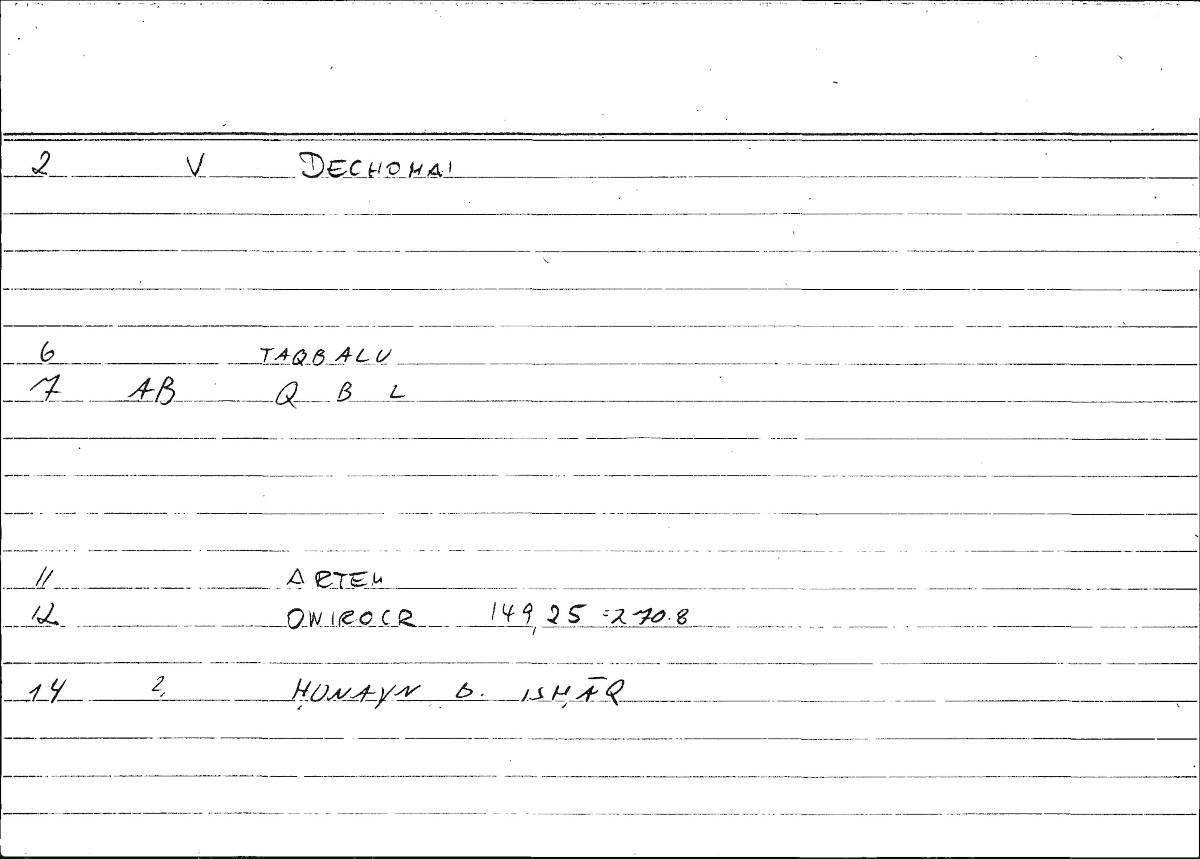 2 V DECHOMAI
6 TAQBALU
7 AB Q B L
11 ARTEM
12 ONIROCR 149,25 =270.8
14 2. ḤUNAYN b. ISḤĀQ